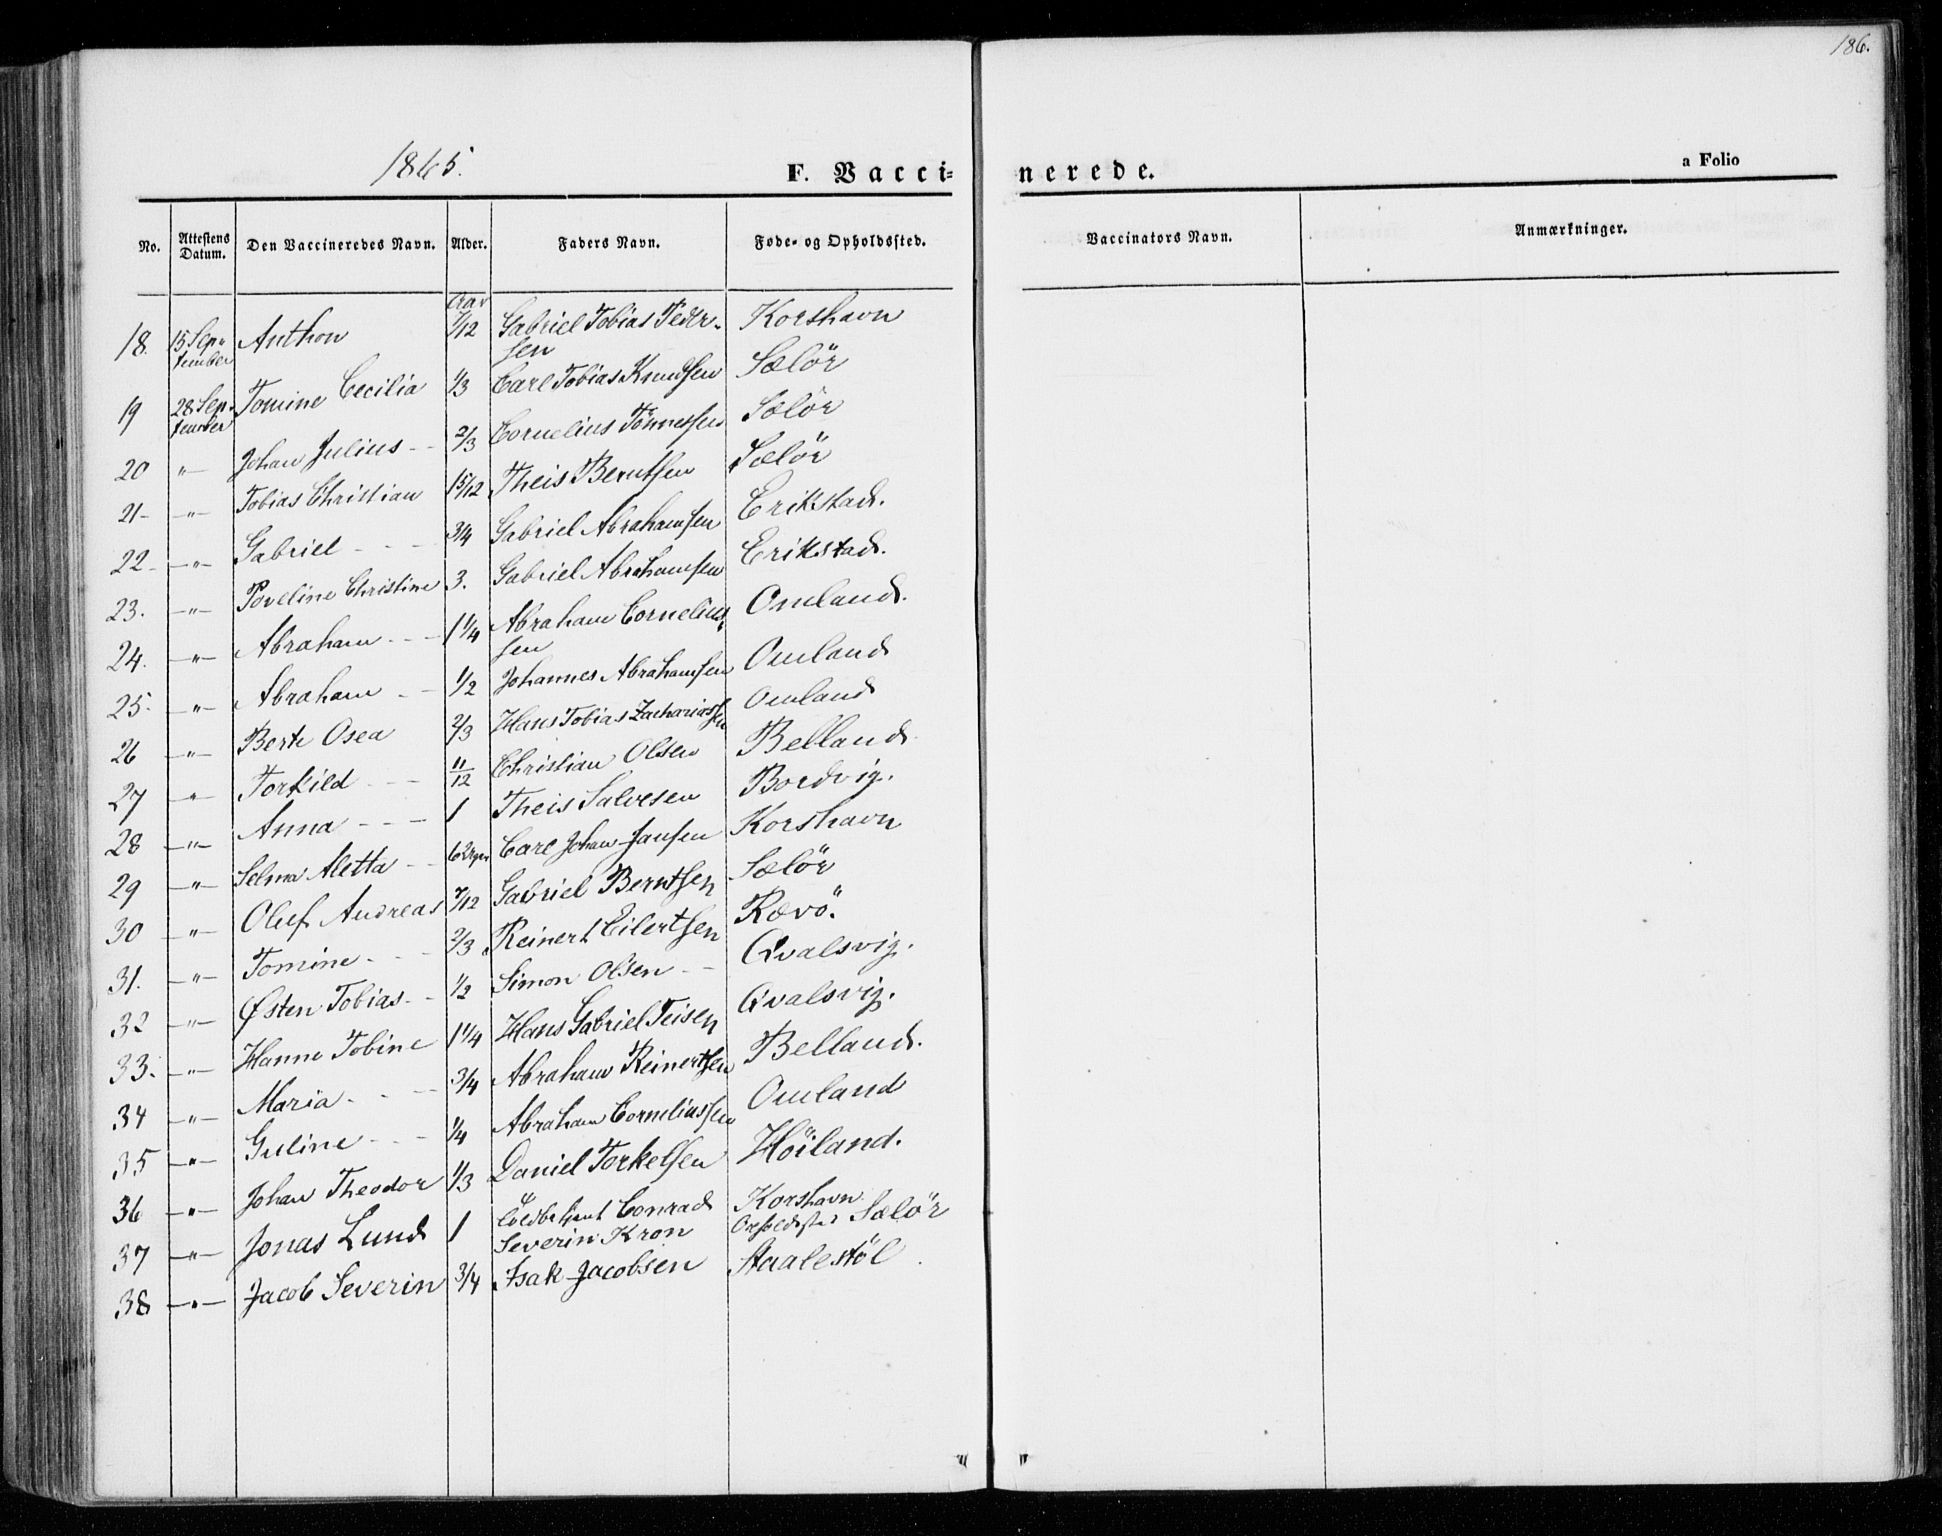 186.
1865.
F. Vacci-
nerede.
a Folio
No. Attestens Datum. Den Vaccineredes Navn. Alder. Faders Navn. Føde- og Opholdssted. Vaccinators Navn. Anmærkninger.
18. 15 Sep- Anthon 7/12 Gabriel Tobias Peder- Korshavn
tember sen
19 28 Sep- Tomine Cecilia 1/3 Carl Tobias Knudsen Sælör
tember
20 " Johan Julius - - 2/3 Cornelius Tönnessen Sælör
21- -"- Tobias Christian 15/12 Theis Berntsen Sælör
22- -"- Gabriel - - - 3/4 Gabriel Abrahamsen Erikstad.
23. -"- Poveline Christine 3. Gabriel Abrahamsen Erikstad.
24. -"- Abraham - - - 1 1/4 Abraham Cornelius- Omland.
sen
25. -"- Abraham - - 1/2 Johannes Abrahamsen Omland
26 -"- Berte Osea 2/3 Hans Tobias Zachariassen Omland
27 -"- Torkild - - 11/12 Christian Olsen Belland
28 -"- Anna - - - 1 Theis Salvesen Boedvig.
29 -"- Selma Aletta - - Carl Johan Jansen Korshavn
30 -"- Oluf Andreas 7/12 Gabriel Berntsen Sælör
31. -"- Tomine - - - 2/3 Reinert Eilertsen Rævö.
32 -"- Østen Tobias - - 1/2 Simon Olsen - - Qvalsvig.
33. -"- Hanne Tobine 1 1/4 Hans Gabriel Teisen Qvalsvig.
34 -"- Maria - - - 3/4 Abraham Reinertsen Belland.
35 -"- Guline - - - 1/4 Abraham Corneliussen Omland
36 -"- Johan Theodor 1/3 Daniel Torkelsen Höiland.
37 -"- Jonas Lund 1 Toldbetjent Conrad Korshavn
Severin Kron Opholdsted Sælör
38 -"- Jacob Severin 3/4 Isak Jacobsen Staalestöl